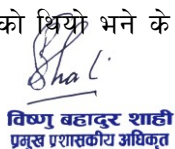 को थियो भने के
विष्णु बहादुर शाही
प्रमुख प्रशासकीय अधिकृत